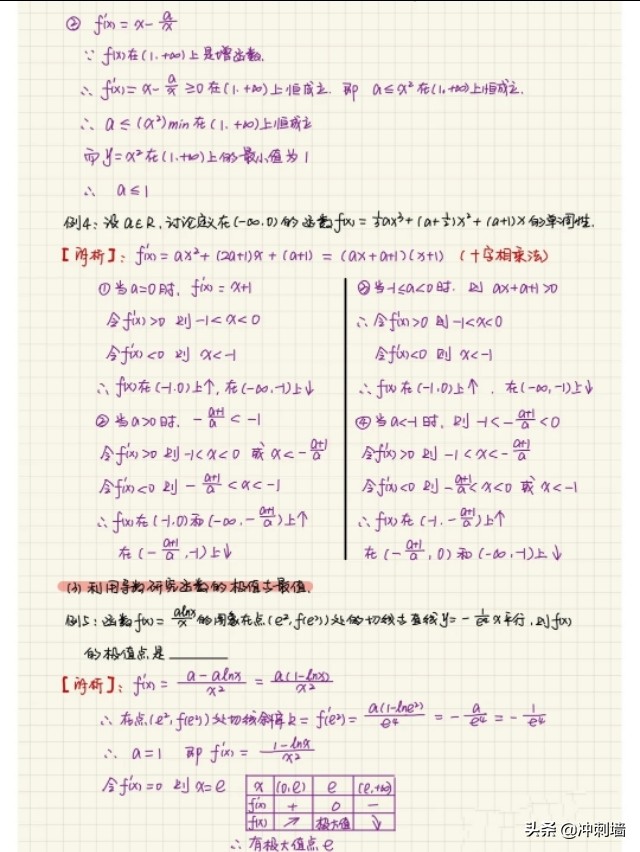 ② f'(x) = x - a/x
∵ f(x)在(1,+∞)上是增函数.
∴ f'(x) = x - a/x ≥0在(1,+∞)上恒成立. 即 a≤x²在(1,+∞)上恒成立.
∴ a≤(x²)min在(1,+∞)上恒成立
而y=x²在(1,+∞)上的最小值为1
∴ a≤1
例4:设a∈R,讨论定义在(-∞,0)的函数f(x) = 1/3ax³+(a+1/2)x²+(a+1)x的单调性.
【解析】: f'(x) = ax²+(2a+1)x+(a+1) = (ax+a+1)(x+1) (十字相乘法)
①当a=0时, f'(x) = x+1
令f'(x)>0 则 -1<x<0
令f'(x)<0 则 x<-1
∴ f(x)在(-1,0)上↑,在(-∞,-1)上↓
②当a>0时, - (a+1)/a < -1
令f'(x)>0 则 -1<x<0 或 x<- (a+1)/a
令f'(x)<0 则 - (a+1)/a <x<-1
∴ f(x)在(-1,0)和(-∞,- (a+1)/a)上↑
在(- (a+1)/a,-1)上↓
③当-1≤a<0时. 则 ax+a+1>0
∴ 令f'(x)>0 则 -1<x<0
令f'(x)<0 则 x<-1
∴ f(x)在(-1,0)上↑ , 在(-∞,-1)上↓
④当a<-1时, 则 -1<- (a+1)/a <0
令f'(x)>0 则 -1<x<- (a+1)/a
令f'(x)<0 则 - (a+1)/a <x<0 或 x<-1
∴ f(x)在(-1,- (a+1)/a)上↑
在(- (a+1)/a,0)和(-∞,-1)上↓
(3) 利用导数研究函数的极值与最值.
例5:函数f(x) = alnx/x 的图象在点(e²,f(e²))处的切线与直线y=- 1/e⁴ x平行,则f(x)
的极值点是
【解析】: f'(x) = (a-alnx)/x² = a(1-lnx)/x²
∴ 在点(e²,f(e²))处切线斜率k=f'(e²) = a(1-lne²)/e⁴ = - a/e⁴ = - 1/e⁴
∴ a=1 即 f'(x) = (1-lnx)/x²
令f'(x)=0 则 x=e
x (0,e) e (e,+∞)
f'(x) + 0 -
f(x) ↗ 极大值 ↘
∴ 有极大值点 e
头条 @冲刺墙